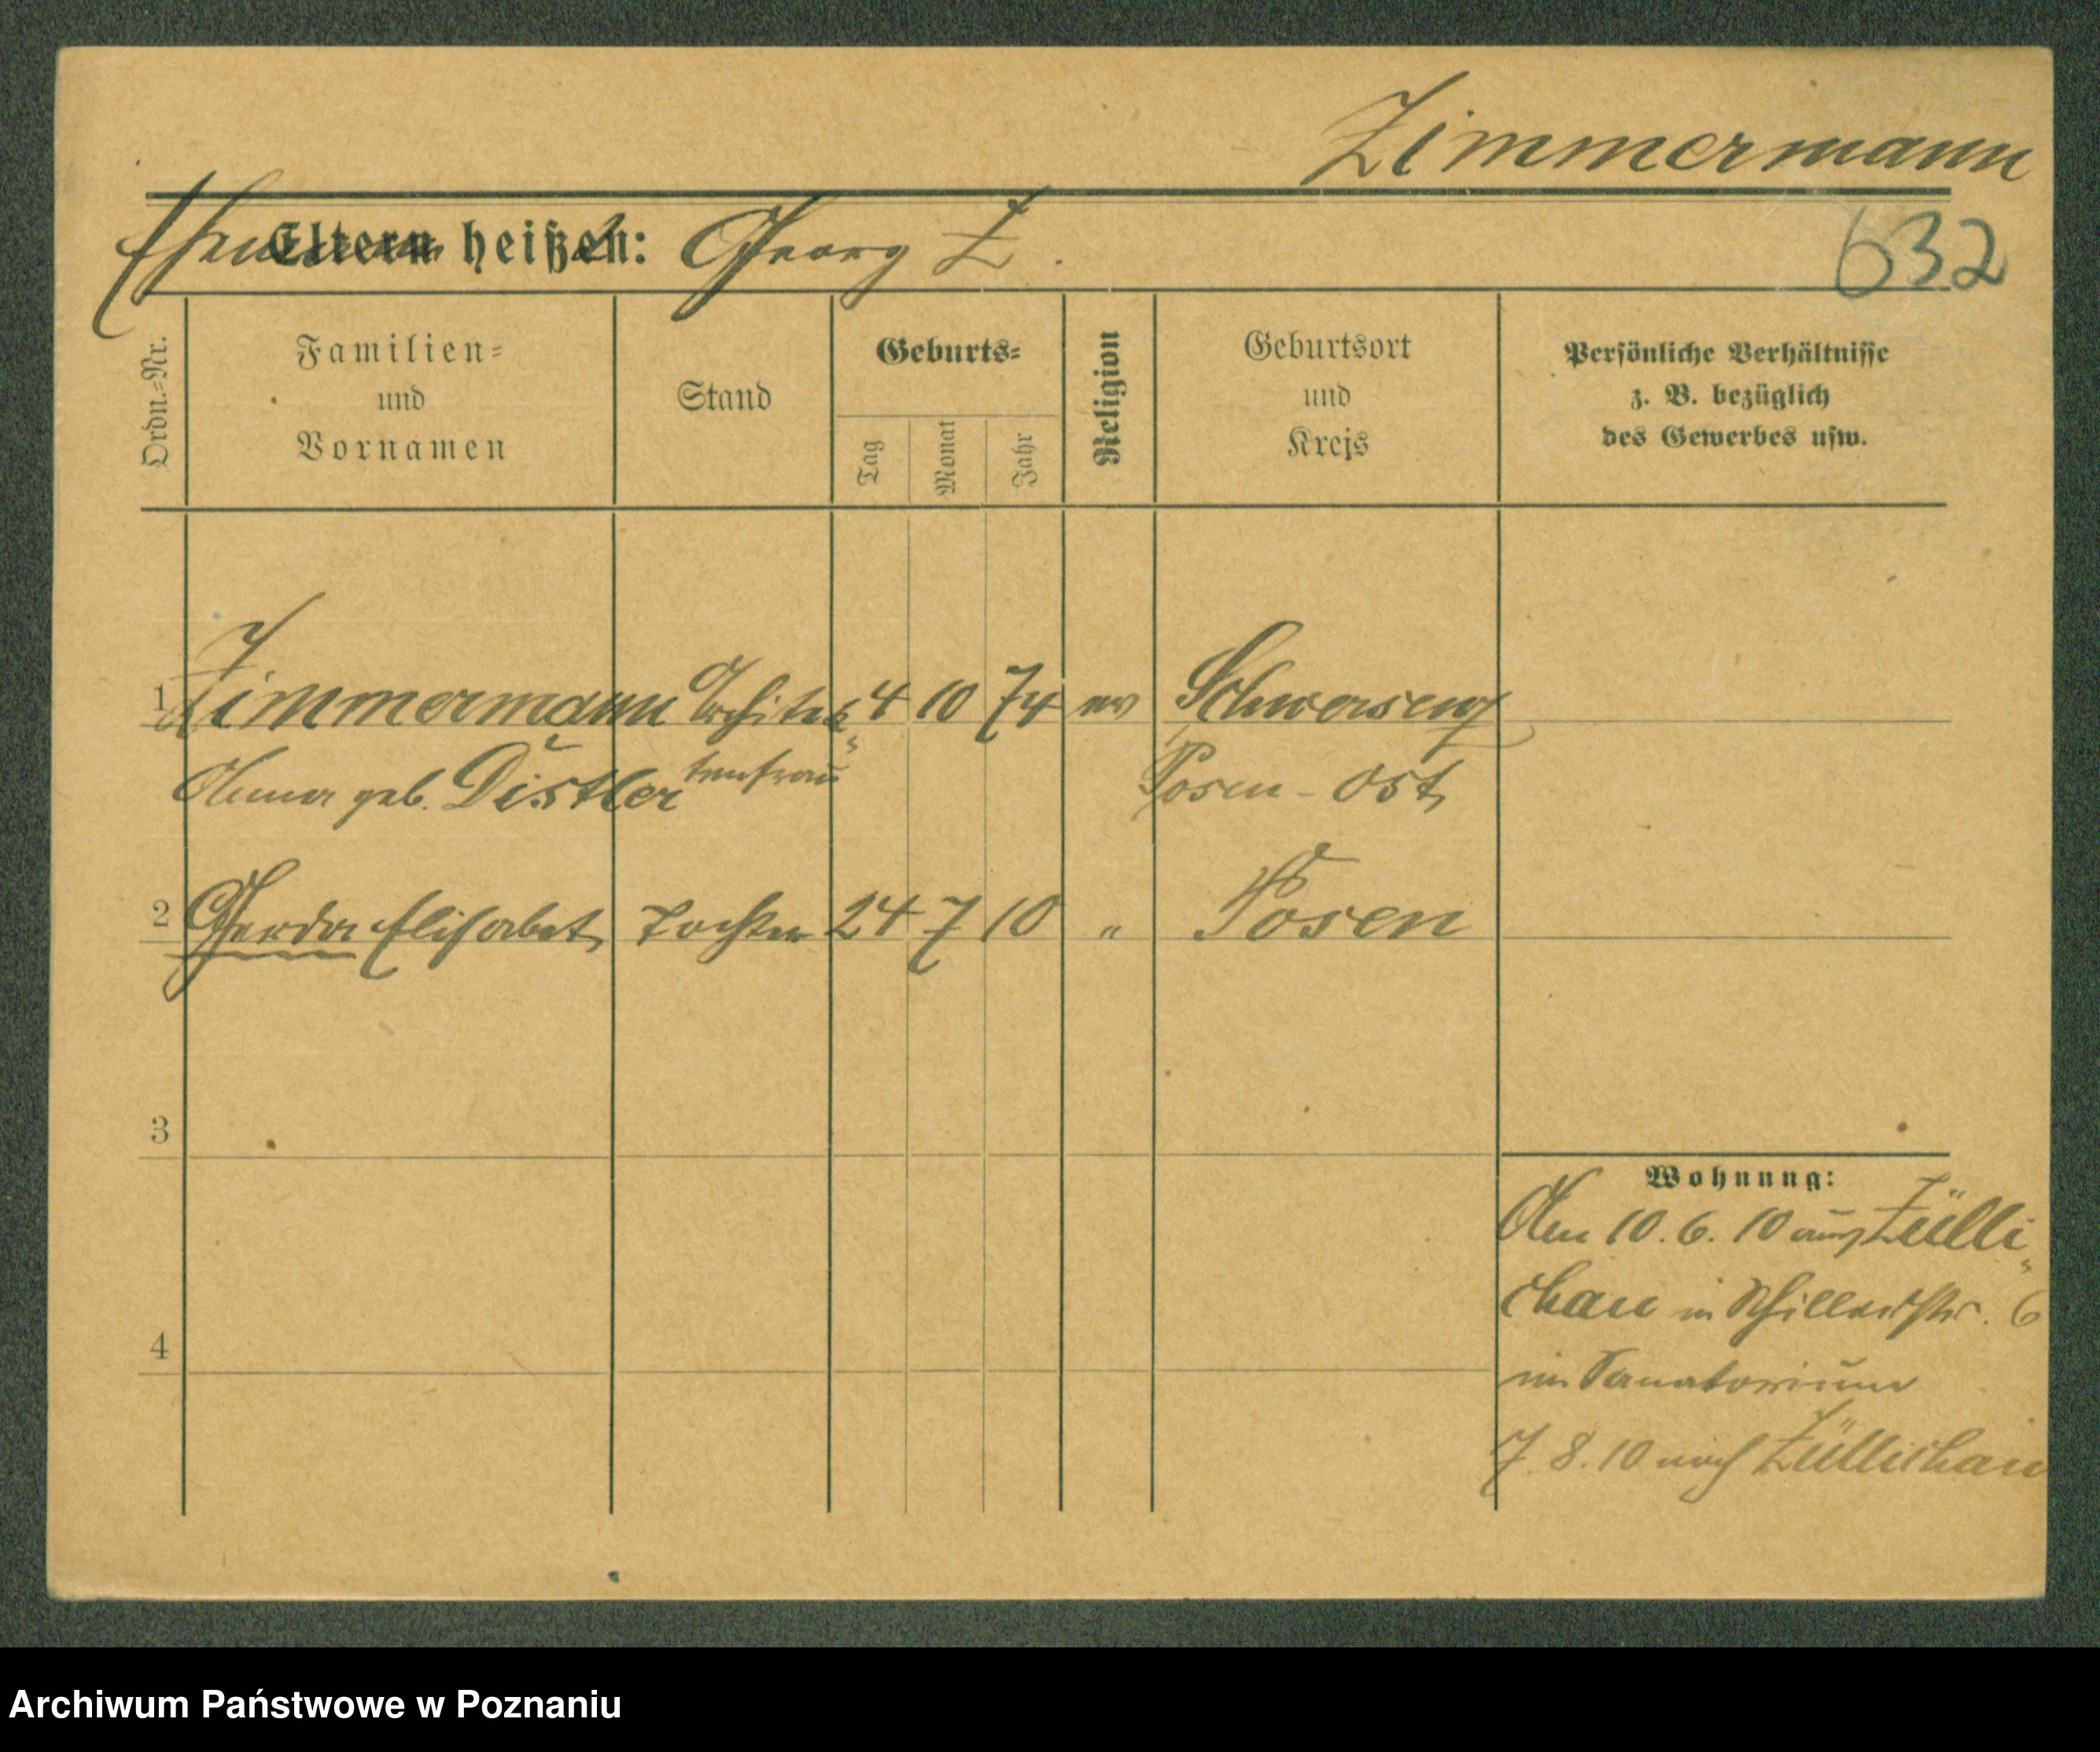 Zimmermann
Ehemann Eltern heißen: Georg Z.
632
Ordn.=Nr.
Familien=
und
Vornamen
Stand
Geburts=
Tag
Monat
Jahr
Religion
Geburtsort
und
Kreis
Persönliche Verhältnisse
z. B. bezüglich
des Gewerbes usw.
1 Zimmermann Architek= 4 10 74 ev Schwersenz
Anna geb. Distler tenfrau Posen-Ost
2 Gerda Elisabet Tochter 24 7 10 " Posen
3
4
Wohnung:
Am 10. 6. 10 aus Zülli=
chau in Schillerstr. 6
im Sanatorium
7. 8. 10 nach Züllichau
Archiwum Państwowe w Poznaniu